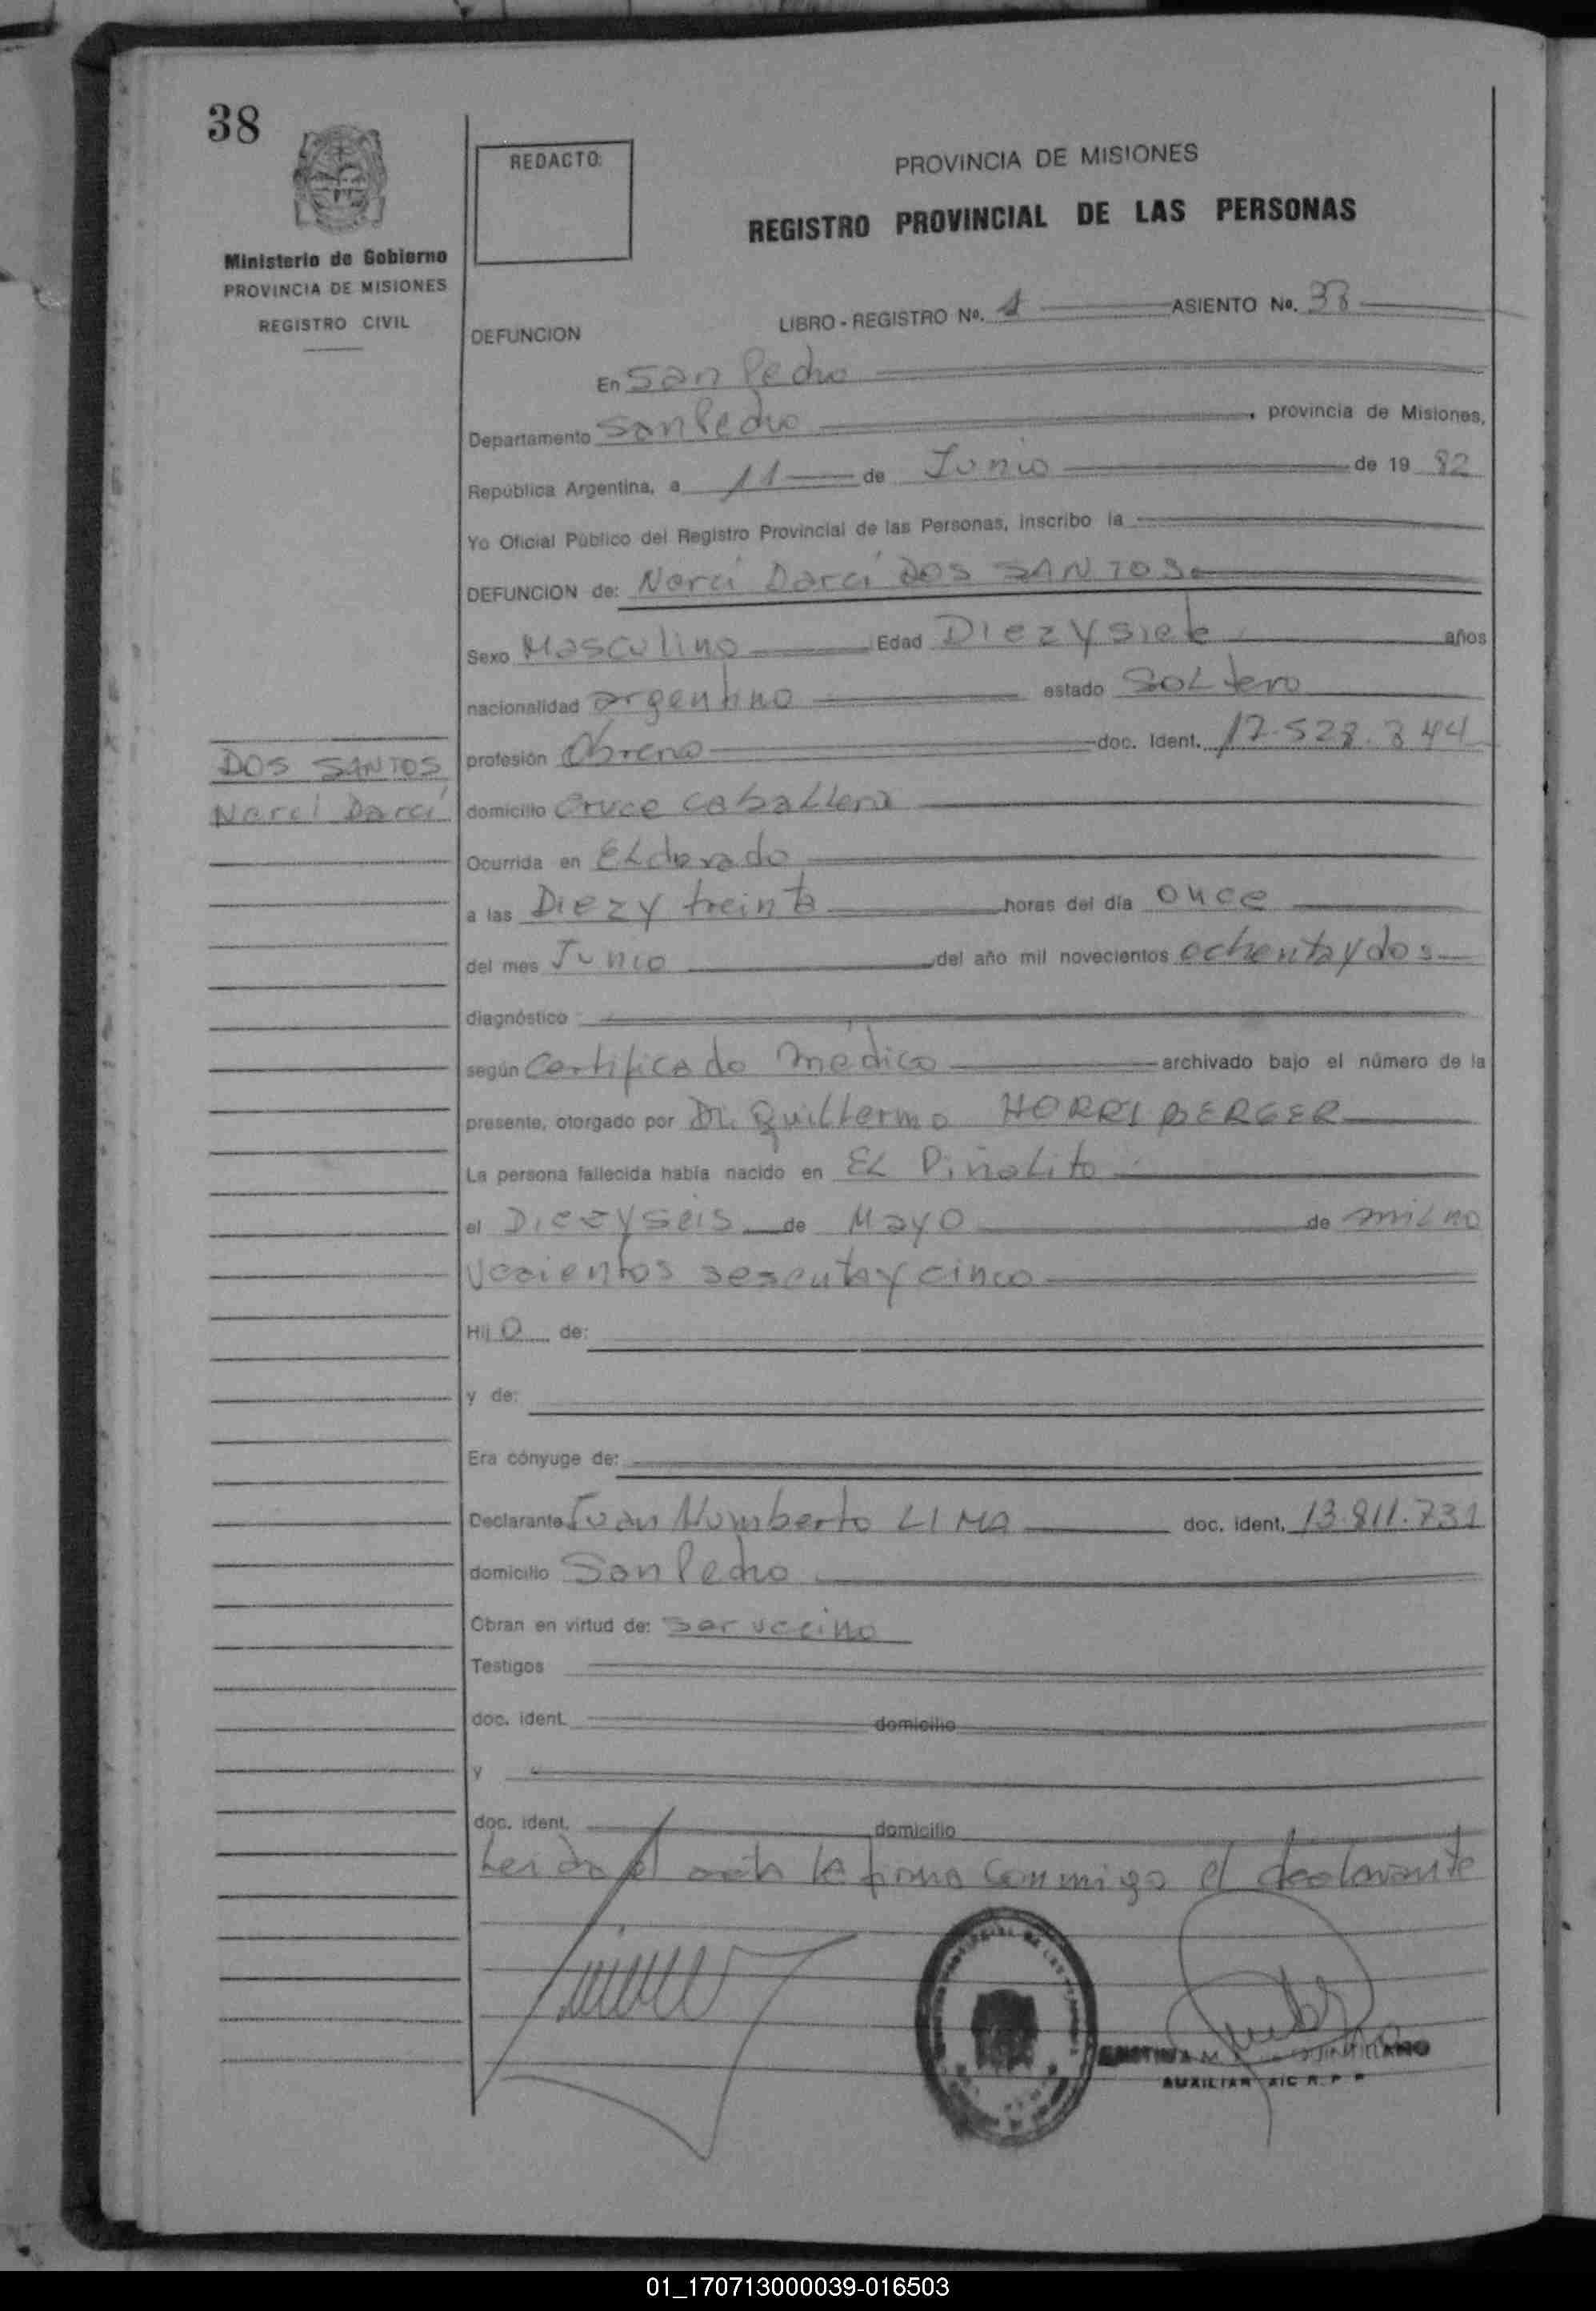 38
REDACTO:
PROVINCIA DE MISIONES
REGISTRO PROVINCIAL DE LAS PERSONAS
Ministerio de Gobierno
PROVINCIA DE MISIONES
REGISTRO CIVIL
LIBRO - REGISTRO No. 1 ASIENTO No. 38
DEFUNCION
En San Pedro
Departamento San Pedro, provincia de Misiones,
República Argentina, a 11 de Junio de 19 82
Yo Oficial Público del Registro Provincial de las Personas, inscribo la
DEFUNCION de: Narci Darci DOS SANTOS
Sexo Masculino Edad Diezysiete años
nacionalidad argentino estado Soltero
profesión Obrero doc. Ident. 17.528.344
DOS SANTOS
Narci Darci
domicilio Cruce Caballero
Ocurrida en Eldorado
a las Diezy treinta horas del día once
del mes Junio del año mil novecientos ochentaydos
diagnóstico
según Certificado médico archivado bajo el número de la
presente, otorgado por Dr. Guillermo HORRISBERGER
La persona fallecida había nacido en EL Piñalito
el Diezyseis de Mayo de milno
vecientos sesentaycinco
Hij o de:
y de:
Era cónyuge de:
Declarante Juan Humberto LIMA doc. ident. 13.811.731
domicilio San Pedro
Obran en virtud de: ser vecino
Testigos
doc. ident. domicilio
y
doc. ident. domicilio
Leida el acta la firma conmigo el declarante
QUINTILLANO
AUXILIAR R. P. P.
01_170713000039-016503